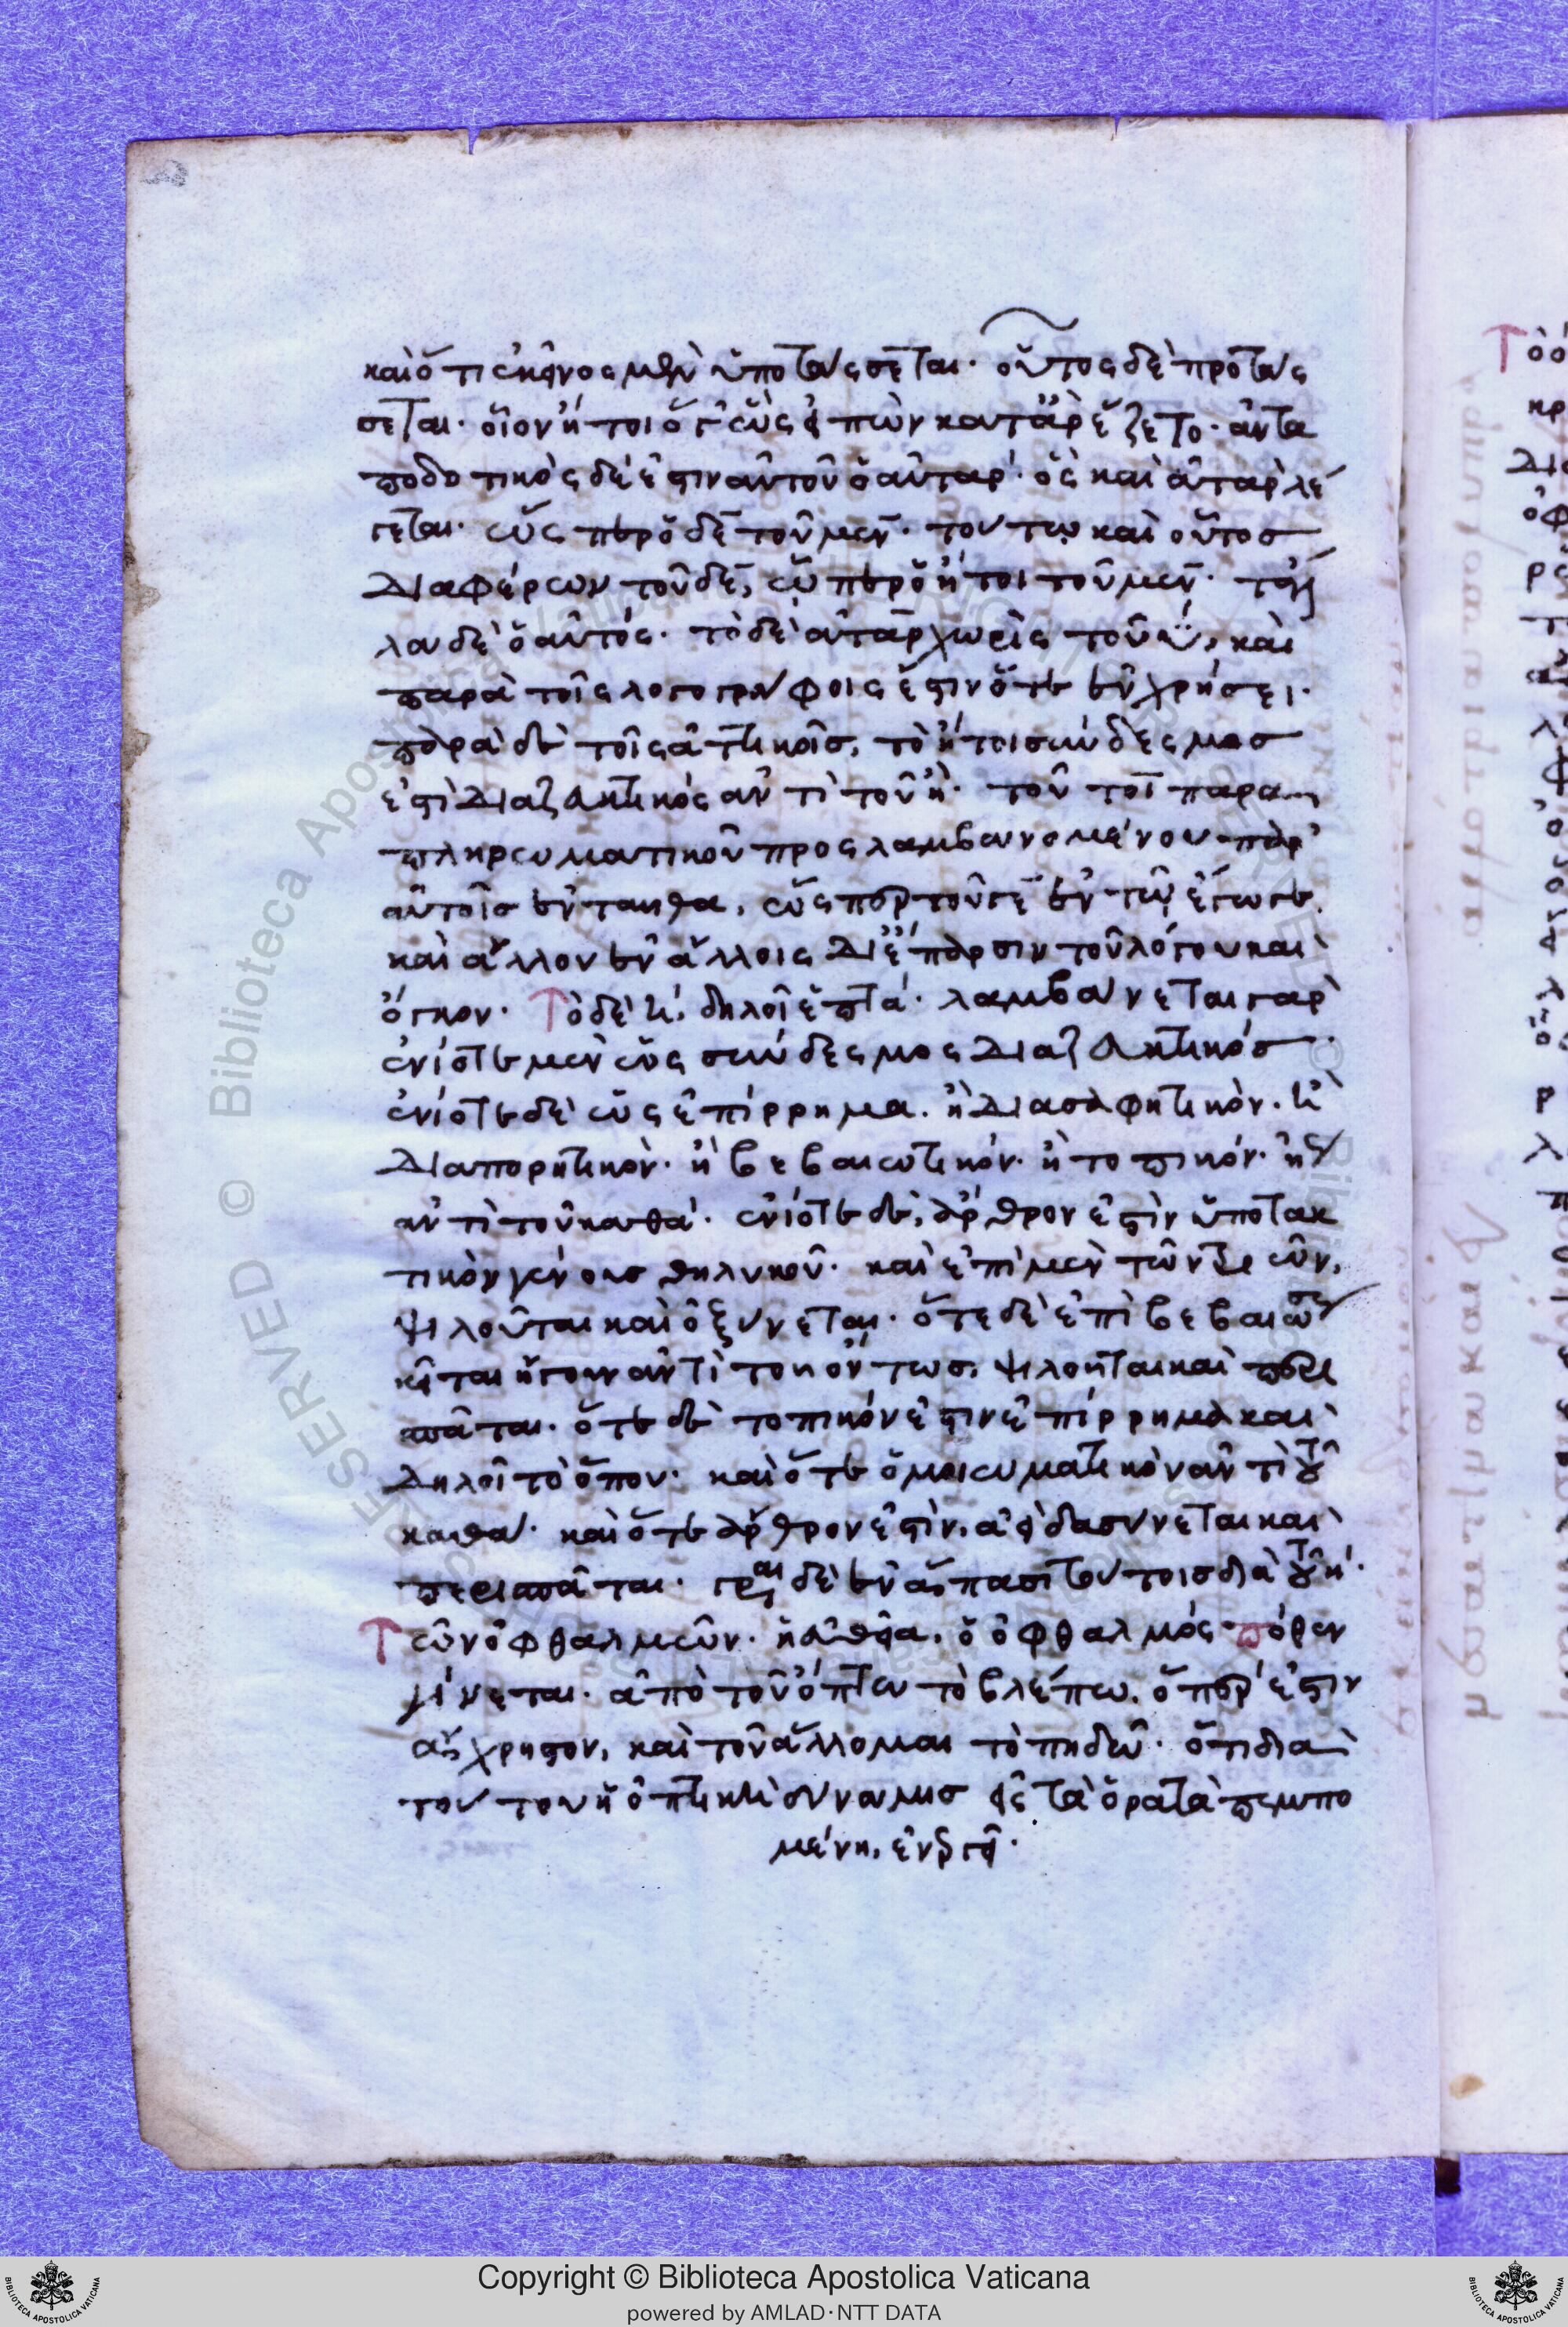 καὶ ὅτι ἐκεῖνος μὲν ὑποτάσσεται· οὗτος δὲ προτάς
σεται· οἷον ἤτοι ὅ γ' ὣς εἰπὼν κατ' ἂρ ἕζετο· ἀντα
ποδοτικὸς δέ ἐστιν αὐτοῦ ὁ αὐτάρ· ὃς καὶ ἀτὰρ λέ
γεται· ὥσπερ ὁ δὲ τοῦ μέν· τούτω καὶ οὗτος
διαφέρων τοῦ δέ, ὥσπερ ὁ ἤτοι τοῦ μέν· τἆλ
λα δὲ ὁ αὐτός· τὸ δὲ ἀτὰρ χωρὶς τοῦ υ, καὶ
παρὰ τοῖς λογογράφοις ἐστὶν ὅτε ἐν χρήσει·
παρὰ δὲ τοῖς ἀττικοῖς, τὸ ἤτοι σύνδεσμος
ἐστὶ διαζευκτικὸς ἀντὶ τοῦ ἤ· τοῦ τοι παρα
πληρωματικοῦ προσλαμβανομένου παρ'
αὐτοῖς ἐνταῦθα, ὥσπερ τοῦ γε ἐν τῷ ἔγωγε,
καὶ ἄλλον ἐν ἄλλοις δι' ἔπαρσιν τοῦ λόγου καὶ
ὄγκον· Τὸ δὲ ἤ, δηλοῖ ἑπτά· λαμβάνεται γὰρ
ἐνίοτε μὲν ὡς σύνδεσμος διαζευκτικός·
ἐνίοτε δὲ ὡς ἐπίρρημα. ἢ διασαφητικόν. ἢ
διαπορητικόν· ἢ βεβαιωτικόν· ἢ τοπικόν· ἢ
ἀντὶ τοῦ καθά· ἐνίοτε δὲ, ἄρθρον ἐστὶν ὑποτακ
τικὸν γένους θηλυκοῦ· καὶ ἐπὶ μὲν τῶν τριῶν,
ψιλοῦται καὶ ὀξύνεται· ὅτε δὲ ἐπὶ βεβαιώσεως
κεῖται ἤγουν ἀντὶ τοῦ ὄντως, ψιλοῦται καὶ περι
σπᾶται. ὅτε δὲ τοπικόν ἐστιν ἐπίρρημα καὶ
δηλοῖ τὸ ὅπου· καὶ ὅτε ὁμοιωματικὸν ἀντὶ τοῦ
καθά· καὶ ὅτε ἄρθρον ἐστὶν, ἀεὶ δασύνεται καὶ
περισπᾶται· γράφεται δὲ ἐν ἅπασι τούτοις διὰ τοῦ η·
Τῶν ὀφθαλμῶν· ἡ εὐθεῖα, ὁ ὀφθαλμός· πόθεν
γίνεται· ἀπὸ τοῦ ὄπτω τὸ βλέπω. ὅπερ ἐστὶν
ἄχρηστον, καὶ τοῦ ἅλλομαι τὸ πηδῶ· ὅτι διὰ
τούτου ἡ ὀπτικὴ δύναμις εἰς τὰ ὁρατὰ πεμπο
μένη, ἐνεργεῖ·